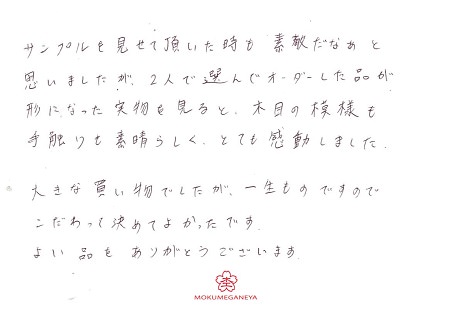 サンプルを見せて頂いた時も素敵だなぁと
思いましたが、2人で選んでオーダーした品が
形になった実物を見ると、木目の模様も
手触りも素晴らしく、とても感動しました。
大きな買い物でしたが、一生ものですので
こだわって決めてよかったです。
よい品をありがとうございます。
MOKUMEGANEYA